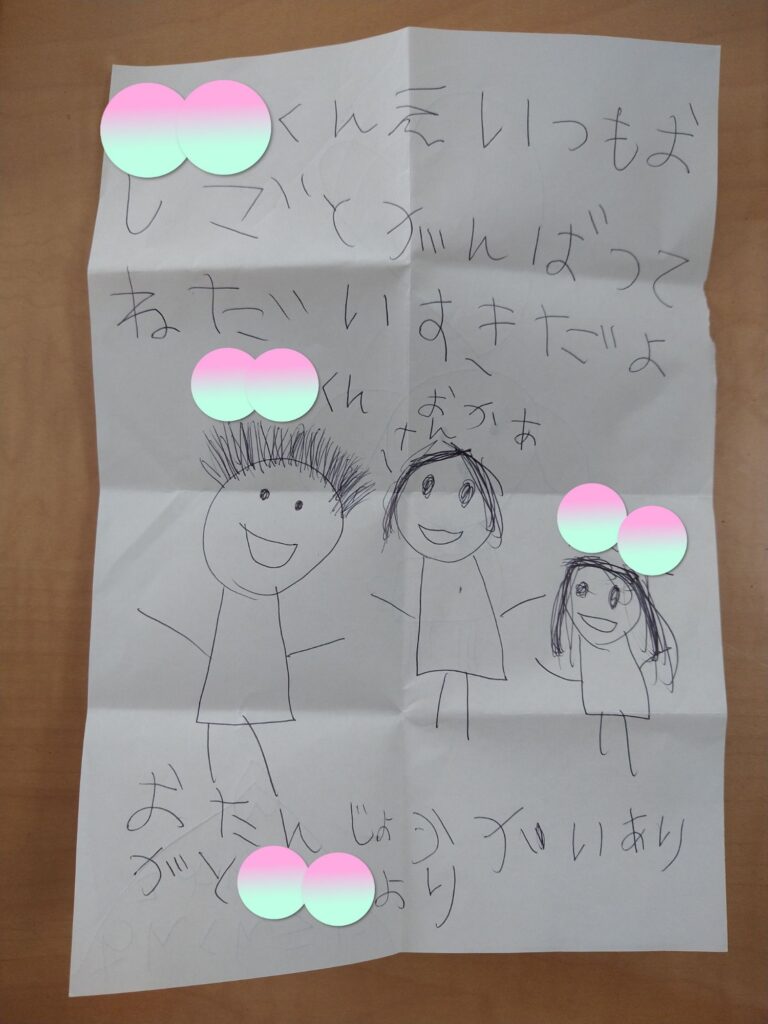 くんえいつもお
しごとがんばって
ねだいすきだよ
くん
おかあ
さん
おたんじょかがいあり
がと
より